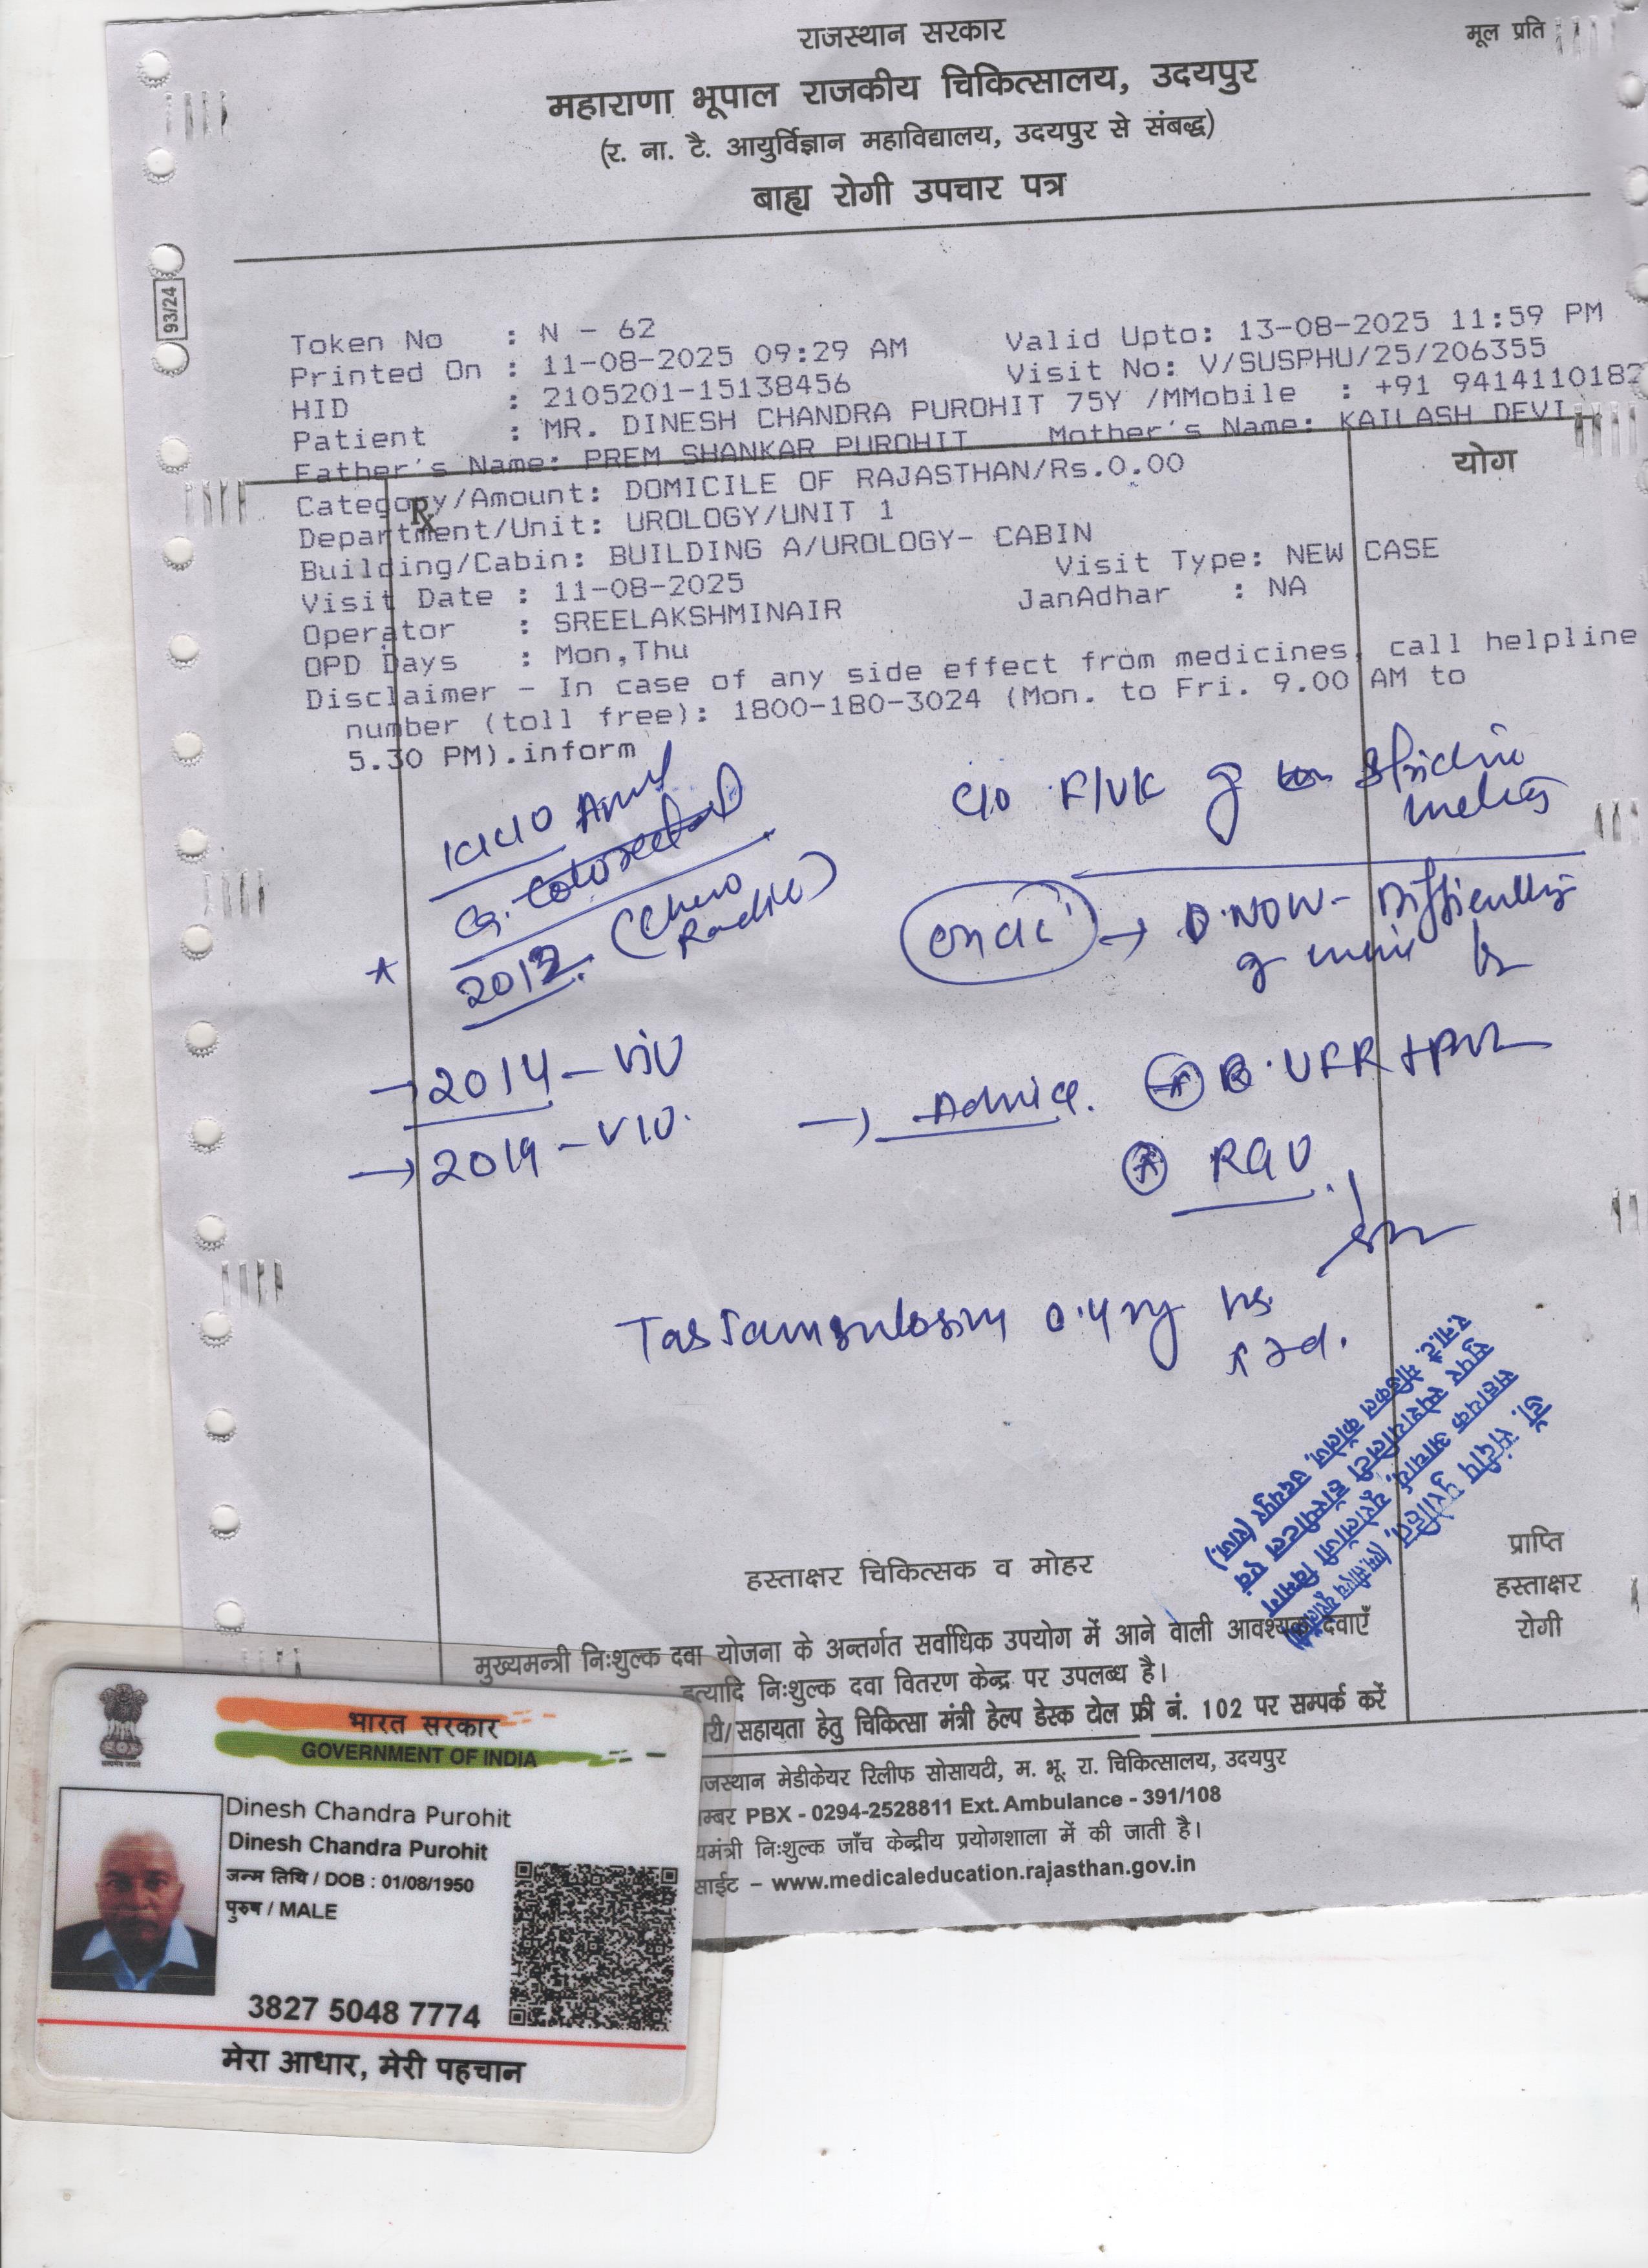 राजस्थान सरकार
मूल प्रति
महाराणा भूपाल राजकीय चिकित्सालय, उदयपुर
(र. ना. टै. आयुर्विज्ञान महाविद्यालय, उदयपुर से संबद्ध)
बाह्य रोगी उपचार पत्र
93/24
Token No : N - 62
Valid Upto: 13-08-2025 11:59 PM
Printed On : 11-08-2025 09:29 AM
Visit No: V/SUSPHU/25/206355
HID : 2105201-15138456
Patient : MR. DINESH CHANDRA PUROHIT 75Y /MMobile : +91 9414110182
Father's Name: PREM SHANKAR PUROHIT Mother's Name: KAILASH DEVI
योग
Category/Amount: DOMICILE OF RAJASTHAN/Rs.0.00
Rx
Department/Unit: UROLOGY/UNIT 1
Building/Cabin: BUILDING A/UROLOGY- CABIN
Visit Date : 11-08-2025
Visit Type: NEW CASE
Operator : SREELAKSHMINAIR
JanAdhar : NA
OPD Days : Mon,Thu
Disclaimer - In case of any side effect from medicines, call helpline
number (toll free): 1800-180-3024 (Mon. to Fri. 9.00 AM to
5.30 PM).inform
K/C/O
C/O F/UK
2012. (Chemo
Radio)
NOW - Difficulty
→ 2014 - VIU
→ 2019 - VIU.
→ Advice. UFR + PVR
RGU
Tab Tamsulosin 0.4 mg hs.
डॉ. संदीप पुरोहित
सहायक आचार्य, यूरोलॉजी विभाग
सुपर स्पेशयलिटी हॉस्पीटल एवं
र.ना.टै. मेडिकल कॉलेज, उदयपुर (राज.)
हस्ताक्षर चिकित्सक व मोहर
प्राप्ति
हस्ताक्षर
रोगी
मुख्यमन्त्री निःशुल्क दवा योजना के अन्तर्गत सर्वाधिक उपयोग में आने वाली आवश्यक दवाएँ
इत्यादि निःशुल्क दवा वितरण केन्द्र पर उपलब्ध है।
री/सहायता हेतु चिकित्सा मंत्री हेल्प डेस्क टोल फ्री नं. 102 पर सम्पर्क करें
जस्थान मेडीकेयर रिलीफ सोसायटी, म. भू. रा. चिकित्सालय, उदयपुर
म्बर PBX - 0294-2528811 Ext. Ambulance - 391/108
यमंत्री निःशुल्क जाँच केन्द्रीय प्रयोगशाला में की जाती है।
साईट - www.medicaleducation.rajasthan.gov.in
भारत सरकार
GOVERNMENT OF INDIA
Dinesh Chandra Purohit
Dinesh Chandra Purohit
जन्म तिथि / DOB : 01/08/1950
पुरुष / MALE
3827 5048 7774
मेरा आधार, मेरी पहचान